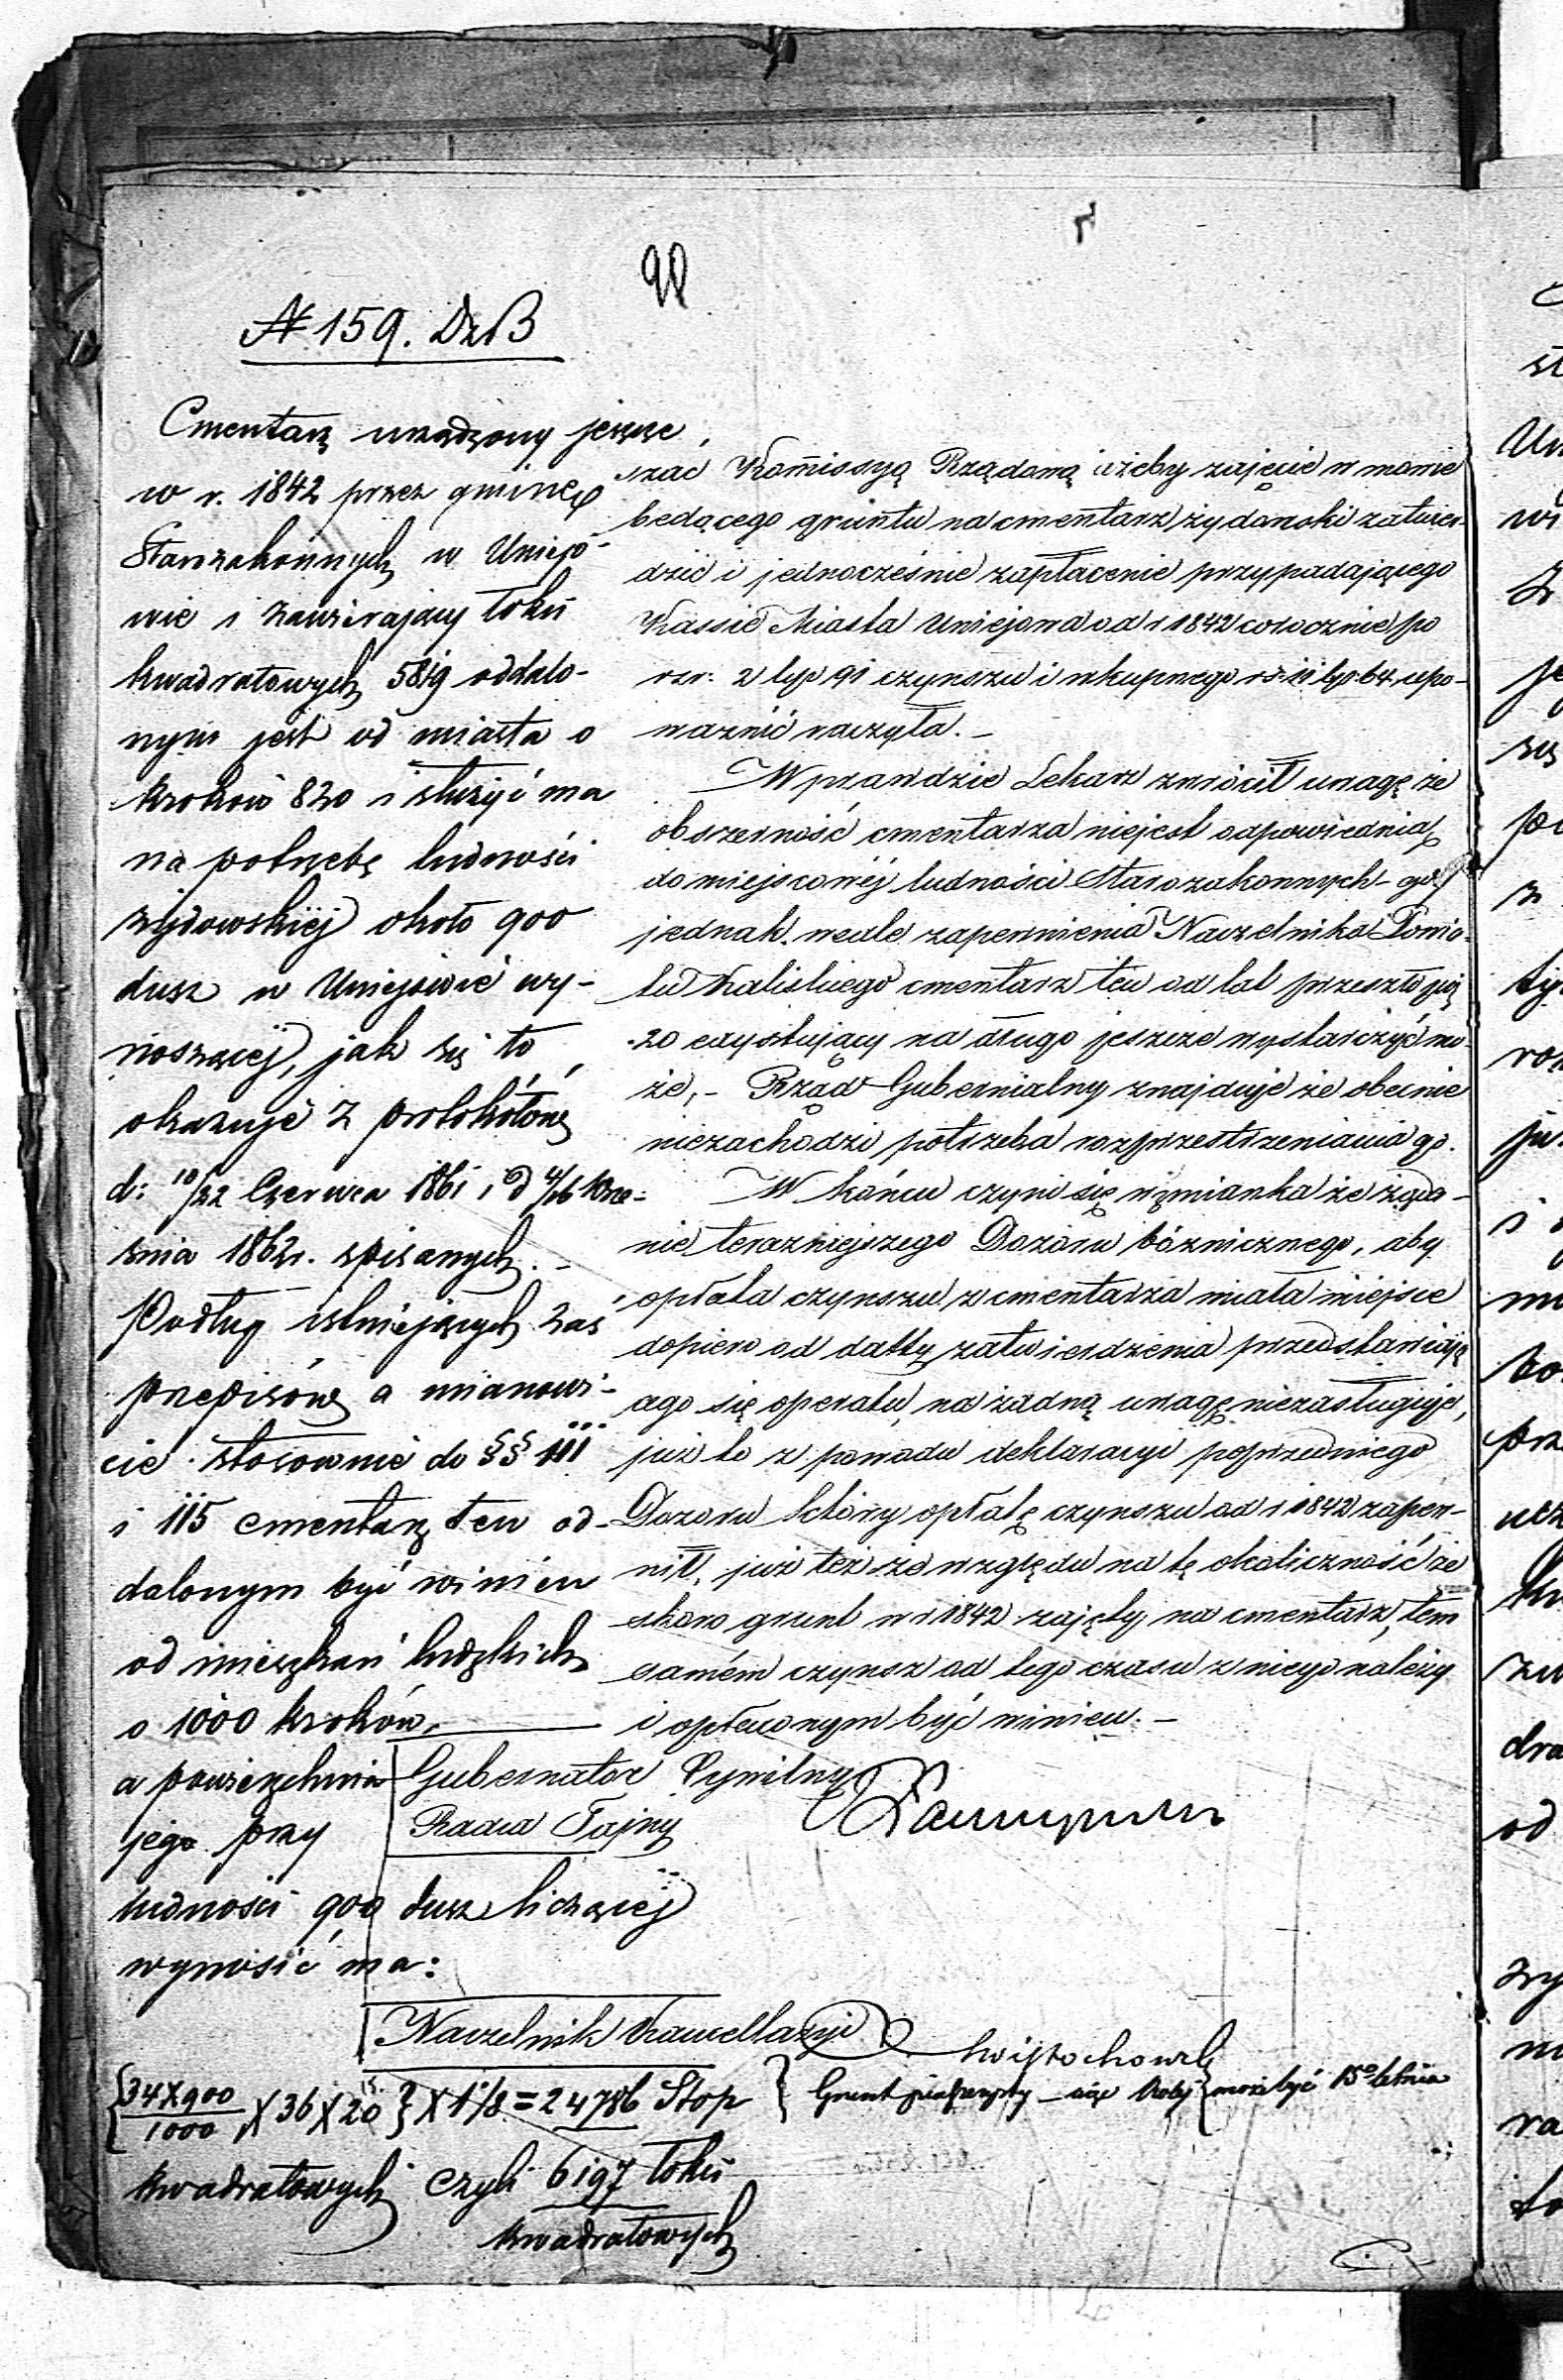 90
№ 159. DzB
Cmentarz urządzony jeszcze
w r. 1842 przez gminę
Starozakonnych w Uniejo-
wie i zawierający łokci
kwadratowych 5819 oddalo-
nym jest od miasta o
kroków 820 i służyć ma
na potrzebę ludności
żydowskiéj około 900
dusz w Uniejowie wy-
noszącej, jak się to
okazuje z protokółów
d: 10/22 Czerwca 1861 i d 4/16 Wrze-
śnia 1862r. spisanych. –
Podług istniejących zaś
przepisów a mianowi-
cie stosownie do §§ 111
i 115 cmentarz ten od-
dalonym być winien
od mieszkań ludzkich
o 1000 kroków,
a powierzchnia
jego przy
ludności 900 dusz liczącéj
wynosić ma:
{34X900/1000 X 36 X 20 } X 1 1/8 = 24786 Stop
kwadratowych czyli 6197 łokci
kwadratowych
szać Kommissyą Rządową iżeby zajęcie w mowie
będącego gruntu na cmentarz żydowski zatwier-
dzić i jednocześnie zapłacenie przypadającego
Kassie Miasta Uniejowa od r 1842 corocznie po
rsr: 2 kp 91 czynszu i wkupnego rs: 11 kp. 64 upo-
ważnić raczyła. –
Wprawdzie Lekarz zwrócił uwagę że
obszerność cmentarza niejest odpowiednią
do miejscowéj ludności Starozakonnych – gdy
jednak wedle zapewnienia Naczelnika Powia-
tu Kaliskiego cmentarz ten od lat przeszło już
20 exystujący na długo jeszcze wystarczyć mo-
że, – Rząd Gubernialny znajduje że obecnie
niezachodzi potrzeba rozprzestrzeniania go.
W końcu czyni się wzmianka że żąda-
nie terazniejszego Dozoru bóżnicznego, aby
opłata czynszu z cmentarza miała miejsce
dopiero od datty zatwierdzenia przedstawiają-
cego się operatu, na żadną uwagę niezasługuje,
już to z powodu deklaracyi poprzedniego
Dozoru który opłatę czynszu od r 1842 zapew-
nił, już też ze względu na tę okoliczność że
skoro grunt w r 1842 zajęty na cmentarz, tem
samém czynsz od tego czasu z niego należy
i opłaconym być winien. –
Gubernator Cywilny
Radca Tajny
Naczelnik Kancellaryi
Grunt piaszczysty – więc kolej może być 15º letnia